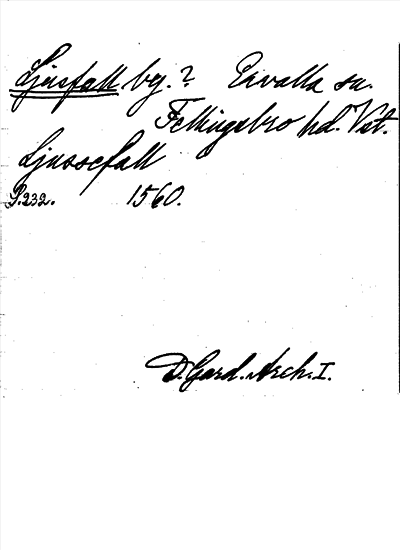 Ljusfall by.? Ervalla sn.
Fellingsbro hd. Vst.
Ljussefall
S.232. 1560.
D.Gard.Arch.I.